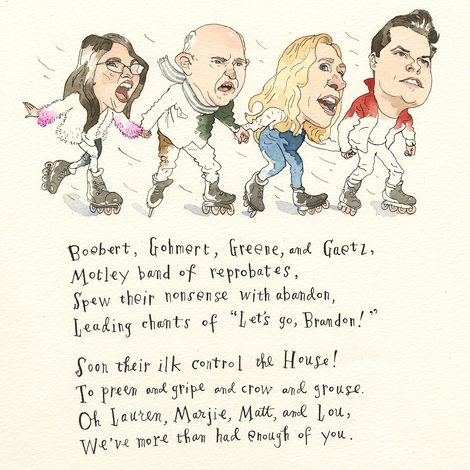 Boebert, Gohmert, Greene, and Gaetz,
Motley band of reprobates,
Spew their nonsense with abandon,
Leading chants of "Let's go, Brandon!"
Soon their ilk control the House!
To preen and gripe and crow and grouse.
Oh Lauren, Marjie, Matt, and Lou,
We've more than had enough of you.